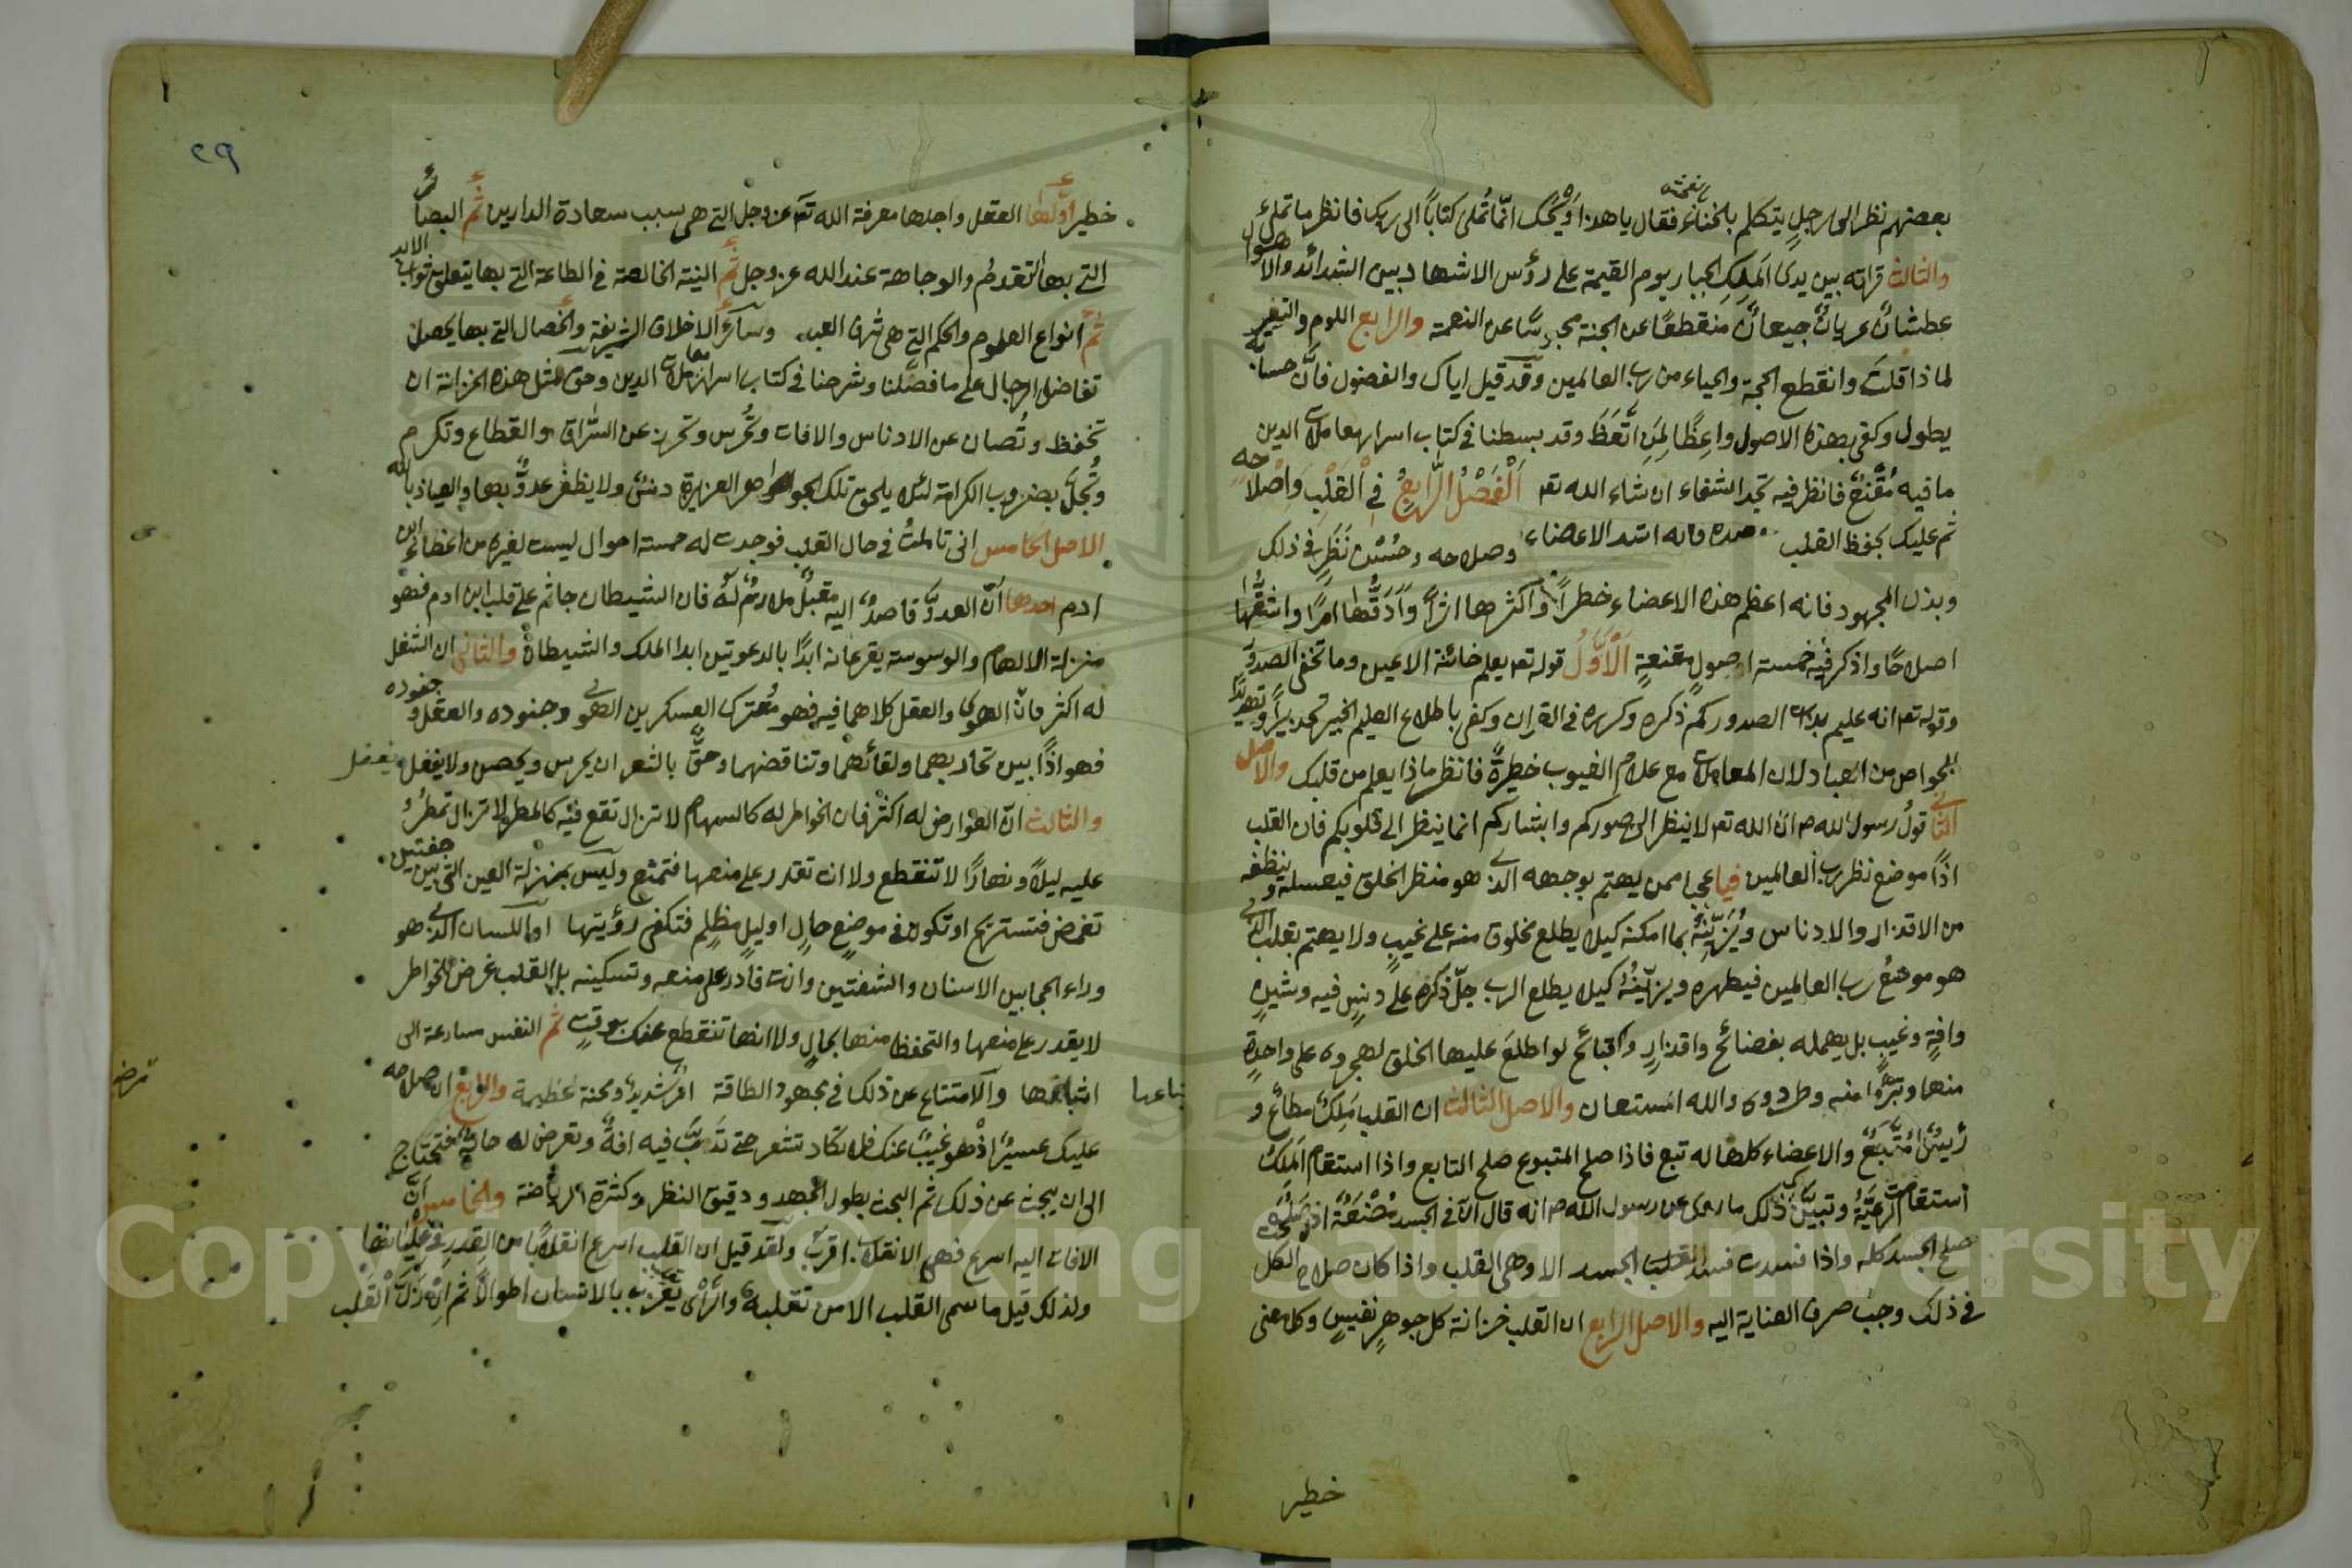 بعضهم نظر الى رجل يتكلم بالخناء فقال يا هذا ويحك انما تملى كتابا الى ربك فانظر ما تملى
والثالث قراته بين يدى الملك الجبار يوم القيمة على رؤس الاشهاد بين الشدائد والاهوال
عطشان عريان جيعان منقطعا عن الجنة محبوسا عن النعمة والرابع اللوم والتعير
لماذا قلت وانقطع الحجة والحياء من رب العالمين وقد قيل اياك والفضول فان حسابه
يطول وكفى بهذه الاصول واعظا لمن اتعظ وقد بسطنا فى كتاب اسرار معاملات الدين
ما فيه مقنع فانظر فيه تجد الشفاء ان شاء الله تع الفصل الرابع فى القلب واصلاحه
ثم عليك بحفظ القلب وصلاحه وحسن نظر فى ذلك
وبذل المجهود فانه اعظم هذه الاعضاء خطرا واكثرها اثرا وادقها امرا واشقها
اصلاحا واذكر فيه خمسة اصول مقنعة الاول قوله تع يعلم خائنة الاعين وما تخفى الصدور
وقوله تع انه عليم بذات الصدور كم ذكره وكرره فى القران وكفى باطلاع العليم الخبير تحذيرا وتهديدا
للخواص من العباد لان المعاملات مع علام الغيوب خطيرة فانظر ماذا يعلم من قلبك والاصل
الثانى قول رسول الله ص ان الله تع لا ينظر الى صوركم وابشاركم انما ينظر الى قلوبكم فان القلب
اذا موضع نظر رب العالمين فيا عجبا ممن يهتم بوجهه الذى هو منظر الخلق فيغسله وينظفه
من الاقذار والادناس ويزينه بما امكنه كيلا يطلع مخلوق منه على عيب ولا يهتم بقلبه الذى
هو موضع رب العالمين فيطهره ويزينه كيلا يطلع الرب جل ذكره على دنس فيه وشين
وافة وعيب بل يهمله بفضائح واقذار وقبائح لو اطلع عليها الخلق لهجروه على واحدة
منها وتبرؤا منه وطردوه والله المستعان والاصل الثالث ان القلب ملك مطاع و
رئيس متبع والاعضاء كلها له تبع فاذا صلح المتبوع صلح التابع واذا استقام الملك
استقام الرعية وتبين ذلك ما روى عن رسول الله ص انه قال ان فى الجسد مضغة اذا صلحت
صلح الجسد كله واذا فسدت فسد الجسد الا وهى القلب واذا كان صلاح الكل
فى ذلك وجب صرف العناية اليه والاصل الرابع ان القلب خزانة كل جوهر نفيس وكل معنى
خطير
٢٩
خطير اولها العقل واجلها معرفة الله تع عز وجل التى هى سبب سعادة الدارين ثم البصائر
التى بها التقدم والوجاهة عند الله عز وجل ثم النية الخالصة فى الطاعة التى بها يتعلق ثواب الابد
ثم انواع العلوم والحكم التى هى شرف العبد وسائر الاخلاق الشريفة والخصال التى بها يحصل
تفاضل الرجال على ما فصلنا وشرحنا فى كتاب اسرار معاملات الدين وحق لمثل هذه الخزانة ان
تحفظ وتصان عن الادناس والافات وتحرس وتحرز عن السراق والقطاع وتكرم
وتجل بضروب الكرامة لئلا يلحق تلك الجواهر العزيزة دنس ولا يظفر عدو بها والعياذ بالله
الاصل الخامس انى تاملت فى حال القلب فوجدت له خمسة احوال ليست لغيره من اعضاء ابن
ادم احدها ان العدو قاصد اليه مقبل ملازم له فان الشيطان جاثم على قلب ابن ادم فهو
منزلة الالهام والوسوسة يقرعانه ابدا بالدعوتين ابدا الملك والشيطان والثانى ان الشغل
له اكثر فان الهوى والعقل كلاهما فيه فهو معترك العسكرين الهوى وجنوده والعقل وجنوده
فهو اذا بين تحاربهما ولقائهما وتناقضهما وحق بالثغر ان يحرس ويحصن ولا يغفل
والثالث ان العوارض له اكثر فان الخواطر له كالسهام لا تزال تقع فيه كالمطر لا تزال تمطر
عليه ليلا ونهارا لا تنقطع ولا انت تقدر على منعها فتمتنع وليس بمنزلة العين التى بين جفنين
تغمض فتستريح او تكون فى موضع خال او ليل مظلم فتكفى رؤيتها او اللسان الذى هو
وراء الحجابين الاسنان والشفتين وانت قادر على منعه وتسكينه بل القلب غرض للخواطر
لا يقدر على منعها والتحفظ منها بحال ولا انها تنقطع عنك بوقت ثم النفس مسارعة الى
اتباعها والامتناع عن ذلك فى مجهود الطاقة امر شديد ومحنة عظيمة والرابع ان صلاحه
عليك عسير اذ هو غيب عنك فلا تكاد تشعر حتى تدب فيه افة وتعرض له حالة فتحتاج
الى ان يبحث عن ذلك ثم البحث بطول الجهد ودقيق النظر وكثرة الرياضة والخامس ان
الافات اليه اسرع فهى الى الانقلاب اقرب ولقد قيل ان القلب اسرع انقلابا من القدر فى غليانها
ولذلك قيل ما سمى القلب الا من تقلبه والراى يعزب بالانسان اطوالا ثم ان زل القلب